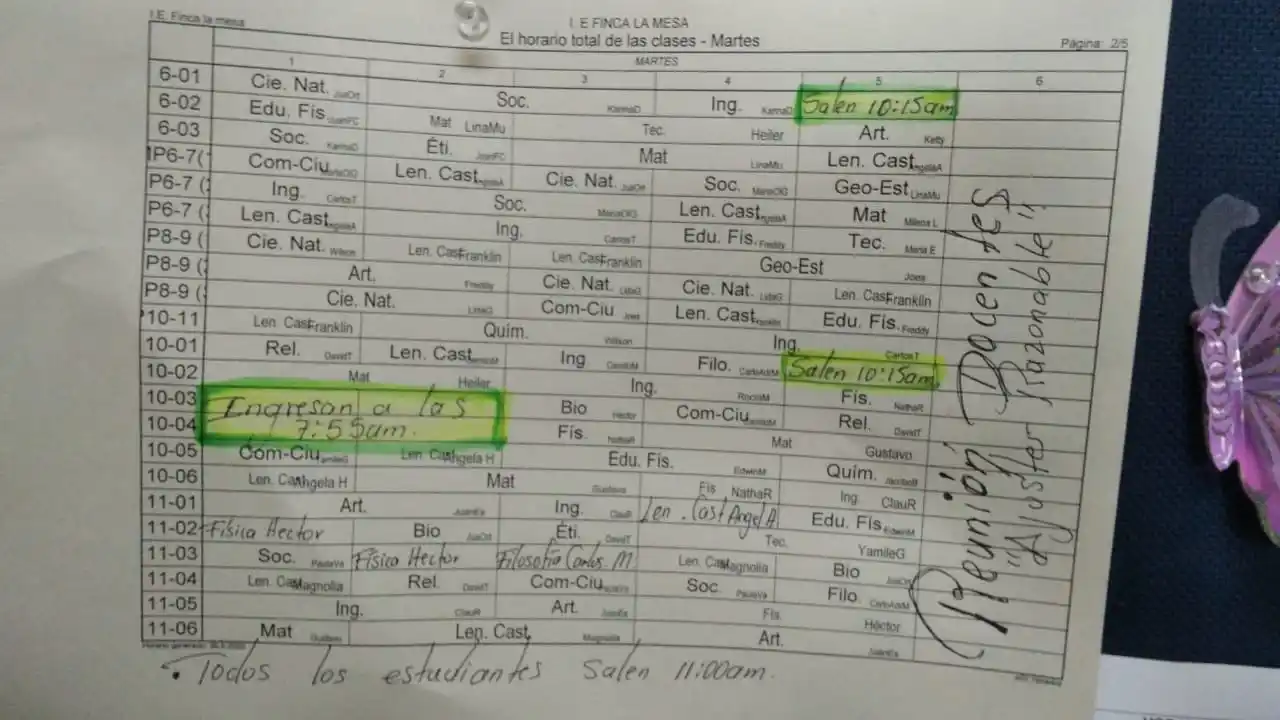 I.E. Finca la mesa
I. E FINCA LA MESA
El horario total de las clases - Martes
Página: 2/5
MARTES
1 2 3 4 5 6
6-01 Cie. Nat. JuaOrt Soc. KarinaD Ing. KarinaD Salen 10:15am
6-02 Edu. Fís. JuanFC Mat LinaMu Tec. Heiler Art. Ketty
6-03 Soc. KarinaD Éti. JuanFC Mat LinaMu Len. Cast.
Com-Ciu Len. Cast. Cie. Nat. JuaOrt Soc. MariaOlG Geo-Est LinaMu
P6-7 ( Ing. CarlosT Soc. MariaOlG Len. Cast. Mat Milena L
P6-7 ( Len. Cast. Ing. CarlosT Edu. Fís. Freddy Tec. Maria E
P8-9 ( Cie. Nat. Wilson Len. CastFranklin Len. CastFranklin Geo-Est
P8-9 ( Art. Freddy Cie. Nat. Cie. Nat. Len. CasFranklin
P8-9 ( Cie. Nat. Com-Ciu Len. Cast. Edu. Fís. Freddy
10-11 Len. CasFranklin Quím. Wilson Ing. CarlosT
10-01 Rel. DavidT Len. Cast. Ing Filo. Salen 10:15am
10-02 Mat Heiler Ing. Fís. NathaR
10-03 Ingresan a las Bio Hector Com-Ciu Rel. DavidT
10-04 7:55am. Fís. NathaR Mat Gustavo
10-05 Com-Ciu Len. CasAngela H Edu. Fís. EdwinM Quím.
10-06 Len. CasAngela H Mat Gustavo Fís NathaR Ing ClauR
11-01 Art. JuanEs Ing. ClauR Len. Cast Angel A Edu. Fís. EdwinM
11-02 Física Hector Bio JuaOrt Éti. DavidT Tec. YamileG
11-03 Soc. PaulaVa Física Hector Filosofía Carlos M. Len. CasMagnolia Bio JuaOrt
11-04 Len. CasMagnolia Rel. DavidT Com-Ciu Soc. PaulaVa Filo.
11-05 Ing. ClauR Art. JuanEs Fís. Héctor
11-06 Mat Gustavo Len. Cast. Magnolia Art. JuanEs
Reunión Docentes
"Ajuster Razonable"
. Todos los estudiantes Salen 11:00am.